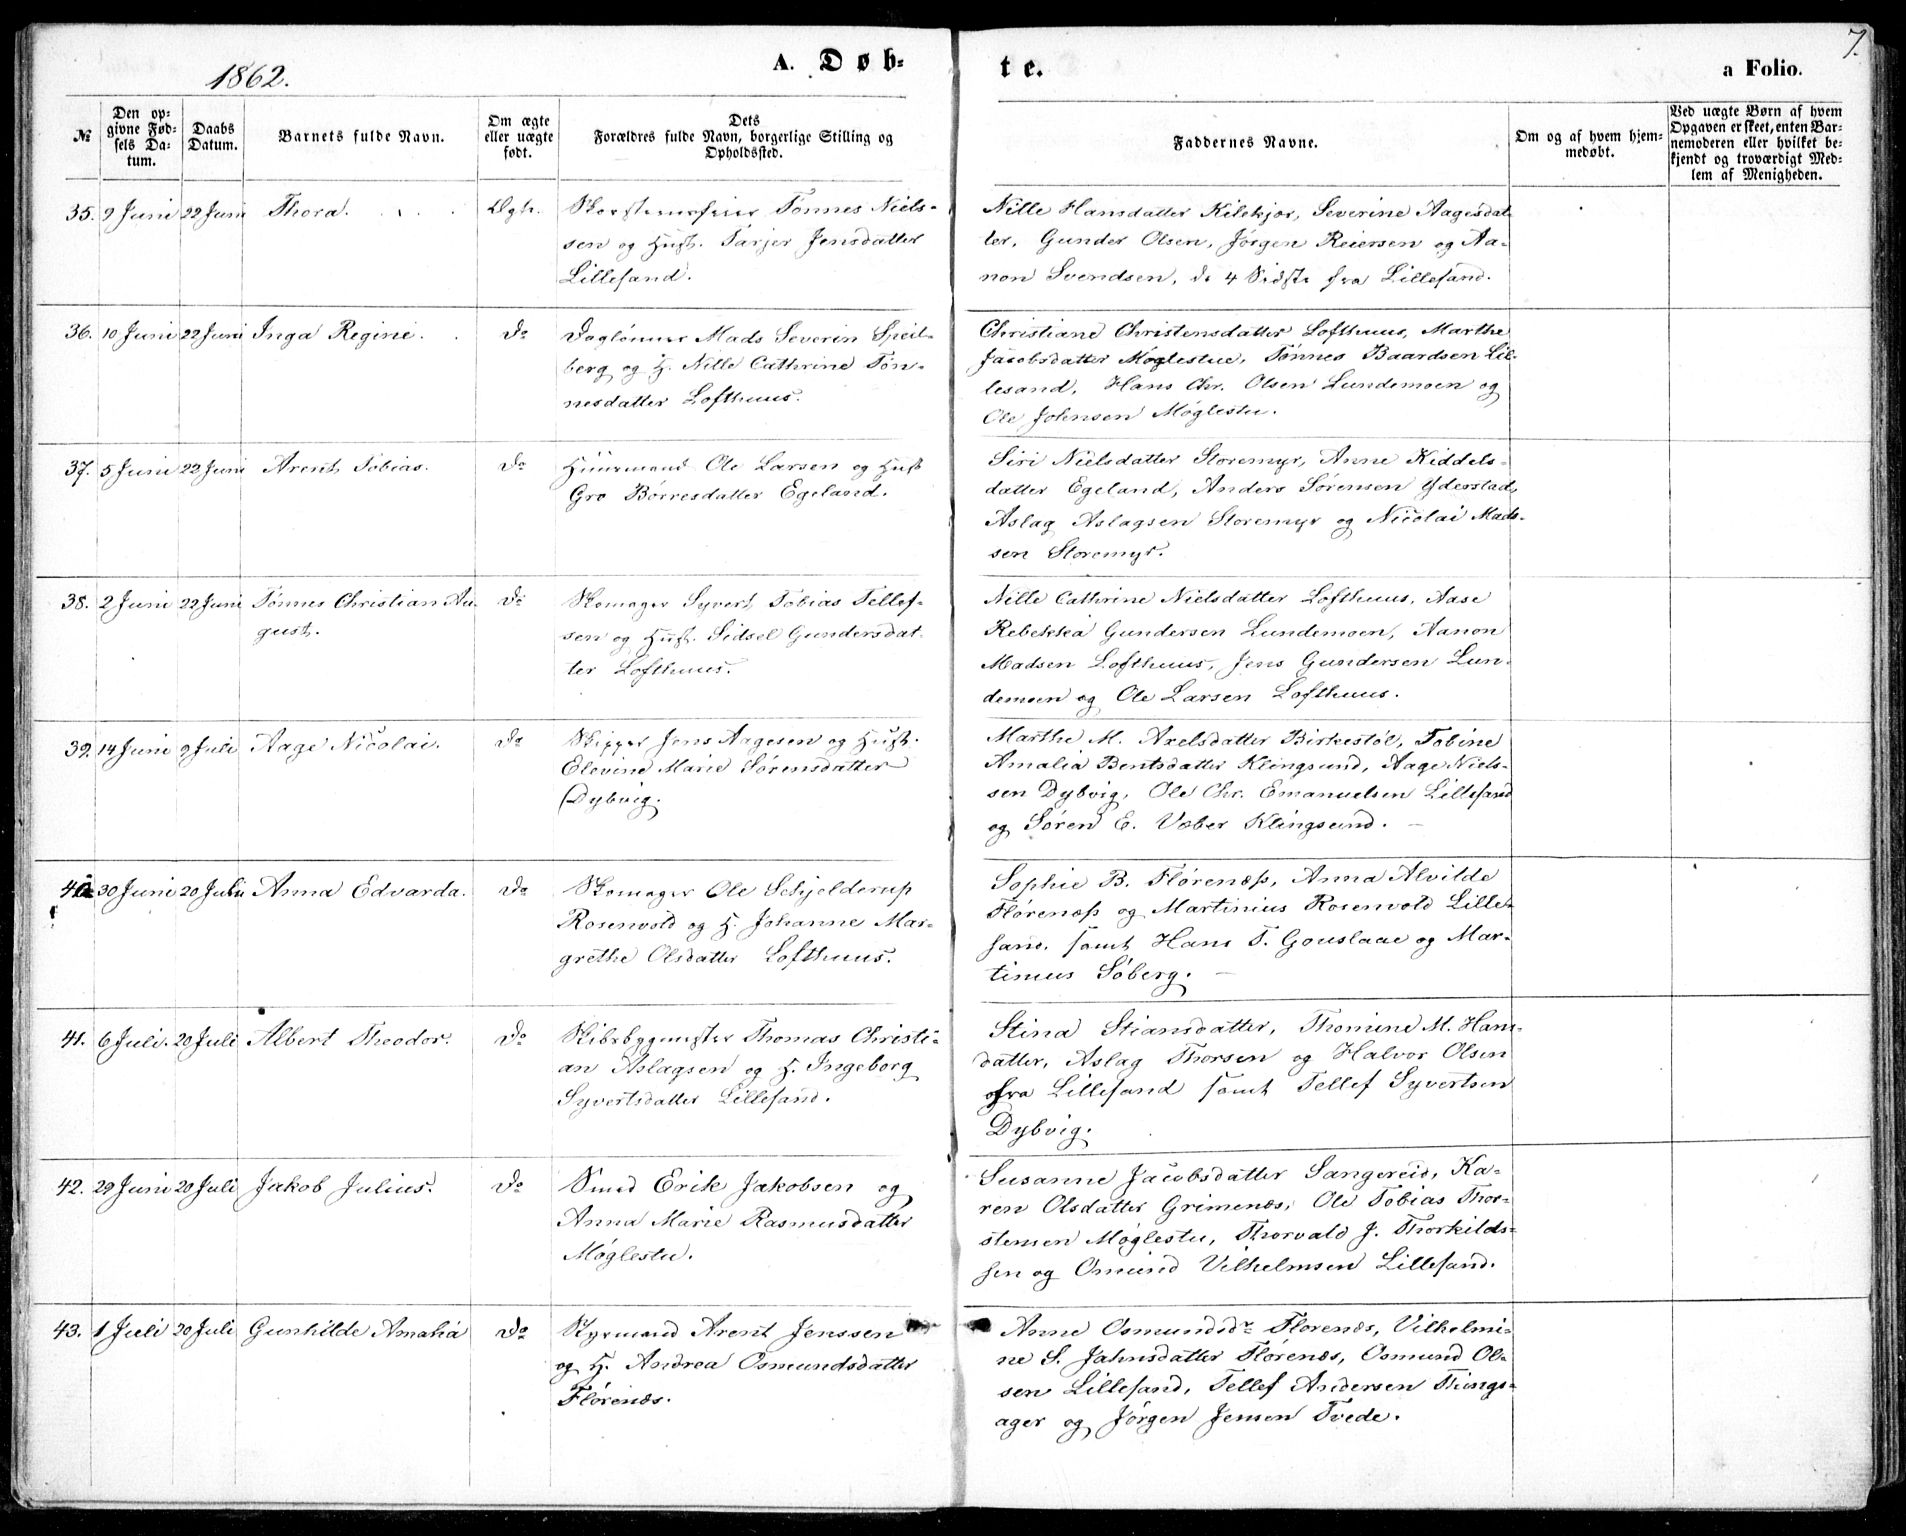 1862.
A. Døb-
te.
a Folio.
7.
№
Den op-
givne Fød-
sels Da-
tum.
Daabs
Datum.
Barnets fulde Navn.
Om ægte
eller uægte
født.
Dets
Forældres fulde Navn, borgerlige Stilling og
Opholdssted.
Faddernes Navne.
Om og af hvem hjem-
medøbt.
Ved uægte Børn af hvem
Opgaven er skeet, enten Bar-
nemoderen eller hvilket be-
kjendt og troværdigt Med-
lem af Menigheden.
35. 9 Juni 22 Juni Thora.
Skorstensfeier Tønnes Niels-
sen og Hust. Tarjer Jensdatter
Lillesand.
Nille Hansdatter Kilekjær, Severine Aagesdat-
ter, Gunder Olsen, Jörgen Reiersen og Aa-
non Svendsen, de 4 Sidste fra Lillesand.
36. 10 Juni 22 Juni Inga Regine. Do
Daglønner Mads Severin Speil-
berg og H. Nille Cathrine Tøn-
nesdatter Lofthuus.
Christiane Christensdatter Lofthuus, Marthe
Jacobsdatter Møglestue, Tønnes Baardsen Lil-
lesand, Hans Chr. Olsen Lundemoen og
Ole Johnsen Møglestu.
37. 5 Juni 22 Juni Arent Tobias. Do
Huusmand Ole Larsen og Hust
Gro Börresdatter Egeland.
Siri Nielsdatter Storemyr, Anne Kiddels-
datter Egeland, Anders Sørensen Yderstad,
Aslag Aslagsen Storemyr og Nicolai Mads-
sen Storemyr.
38. 2 Juni 22 Juni Tönnes Christian Au- Do
gust.
Skomager Syvert Tobias Tellef-
sen og Hust. Sidsel Gundersdat-
ter Lofthuus.
Nille Cathrine Nielsdatter Lofthuus, Aase
Rebekka Gundersen Lundemoen, Aanon
Madsen Lofthuus, Jens Gundersen Lun-
demoen og Ole Larsen Lofthuus.
39. 14 Juni 9 Juli Aage Nicolai. Do
Skipper Jens Aagesen og Hust.
Elevine Marie Sørensdatter
Dybvig.
Marthe M. Axelsdatter Birkestöl, Tobine
Amalia Bentsdatter Klingsund, Aage Niels-
sen Dybvig, Ole Chr. Emanuelsen Lillesand
og Søren E. Væber Klingsund. –
40 30 Juni 20 Juli Anna Edvarda. Do
Skomager Ole Schjelderup
Rosenvold og H. Johanne Mar-
grethe Olsdatter Lofthuus.
Sophie B. Flörenæs, Anna Alvilde
Flörenæs og Martinius Rosenvold Lille-
sand, samt Hans T. Gouslaae og Mar-
tinius Söberg. –
41. 6 Juli. 20 Juli Albert Theodor. Do
Skibsbygmester Thomas Christi-
an Aslagsen og H. Ingeborg
Syvertsdatter Lillesand.
Stina Stiansdatter, Thomine M. Hans-
datter, Aslag Thorsen og Halvor Olsen
fra Lillesand samt Tellef Syvertsen
Dybvig.
42. 29 Juni 20 Juli Jakob Julius. Do
Smed Erik Jakobsen og
Anna Marie Rasmusdatter
Møglestu.
Susanne Jacobsdatter Sangereid, Ka-
ren Olsdatter Grimenæs, Ole Tobias Thor-
stensen Møglestu, Thorvald J. Thorkilds-
sen og Osmund Vilhelmsen Lillesand.
43. 1 Juli 20 Juli Gunhilde Amalia Do
Styrmand Arent Jenssen
og H. Andrea Osmundsdatter
Flörenæs.
Anne Osmundsdr Flörenæs, Vilhelmi-
ne S. Jahnsdatter Flörenæs, Osmund Ol-
sen Lillesand, Tellef Andersen Things-
ager og Jörgen Jensen Tvede.